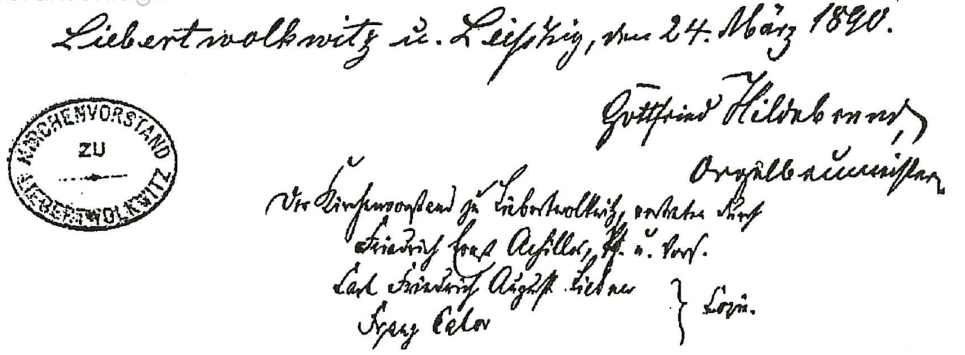 Liebertwolkwitz u. Leipzig, den 24. März 1890.
Gottfried Hildebrand,
Orgelbaumeister.
KIRCHENVORSTAND
ZU
LIEBERTWOLKWITZ
Der Kirchenvorstand zu Liebertwolkwitz, vertreten durch
Friedrich Ernst Schiller, Pf. u. Vors.
Carl Friedrich August
Franz